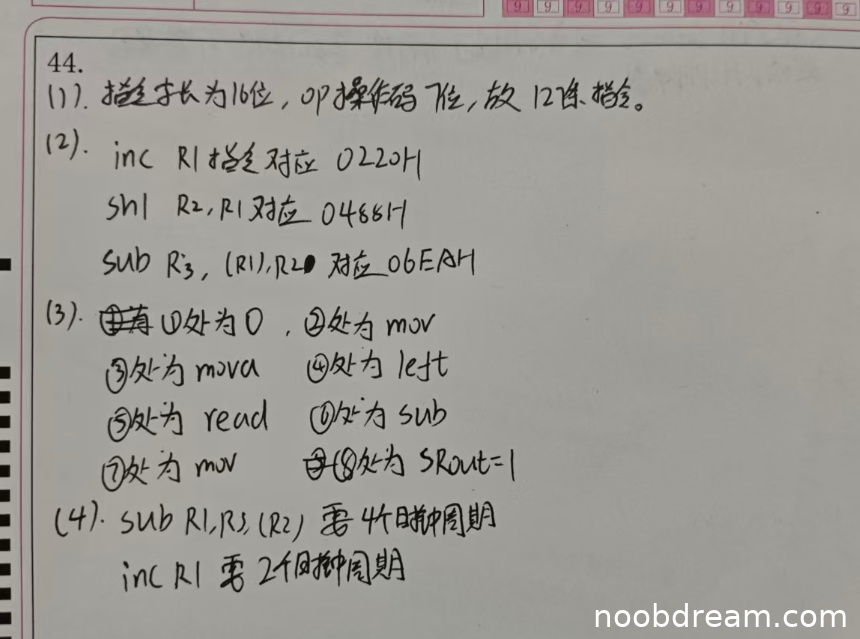 44.
(1). 指令字长为16位，OP操作码7位，故 12条指令。
(2). inc R1指令对应 0220H
shl R2, R1对应 0488H
sub R3, (R1), R2 对应06EAH
(3). ①处为0 , ②处为 mov
③处为 mova ④处为 left
⑤处为 read ⑥处为 sub
⑦处为 mov ⑧处为 SRout=1
(4). sub R1, R3, (R2) 需 4个时钟周期
inc R1 需 2个时钟周期
noobdream.com